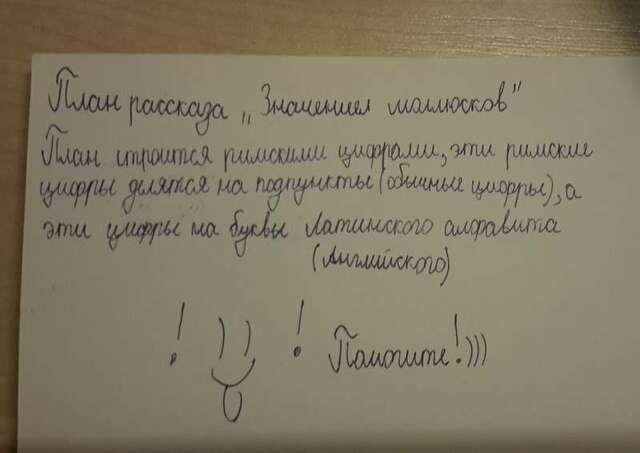 План рассказа „Значения моллюсков"
План строится римскими цифрами, эти римские
цифры делятся на подпункты (обычные цифры), а
эти цифры на буквы Латинского алфавита
(Английского)
! )) ! Помогите!)))